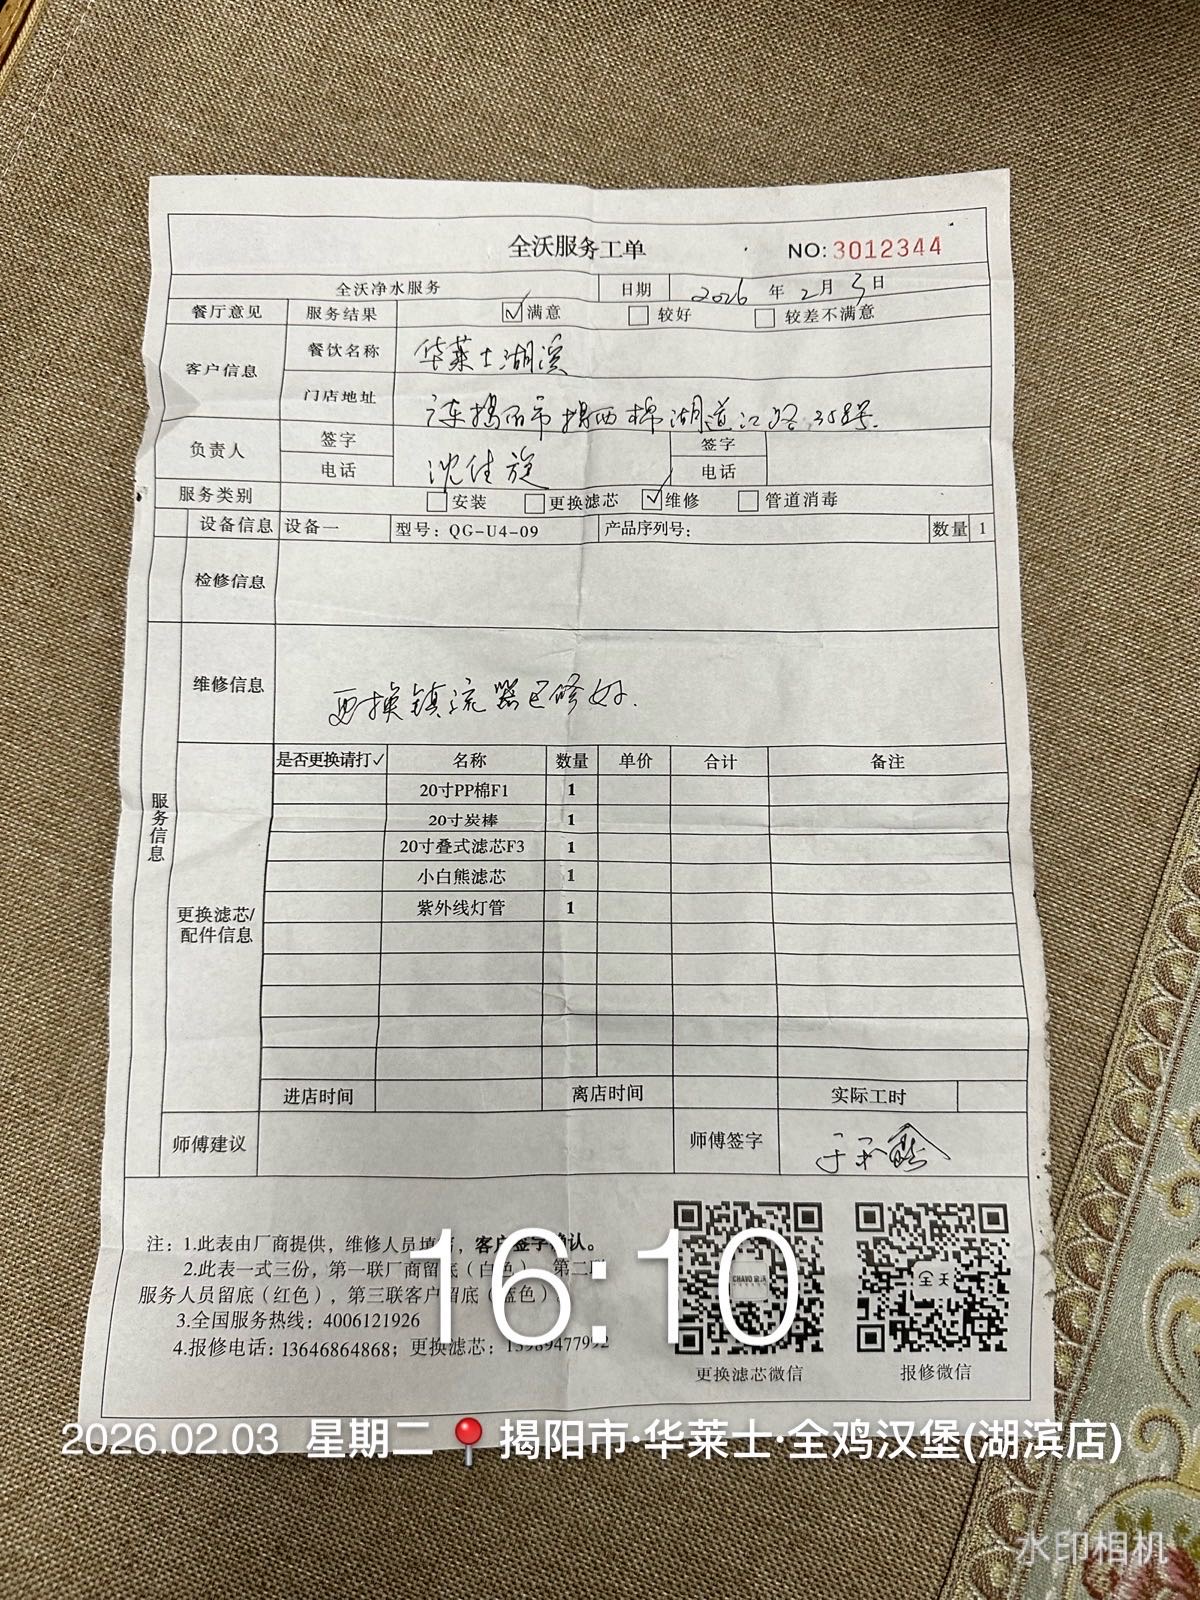 全沃服务工单 NO:3012344
全沃净水服务 日期 2026年2月3日
餐厅意见 服务结果 ☑满意 □较好 □较差不满意
客户信息 餐饮名称 华莱士湖滨
门店地址 广东揭阳市揭西棉湖道江路358号.
负责人 签字 沈佳旋 签字
电话 电话
服务类别 □安装 □更换滤芯 ☑维修 □管道消毒
设备信息 设备一 型号：QG-U4-09 产品序列号： 数量 1
检修信息
维修信息 更换镇流器已修好.
服务信息
是否更换请打✓ 名称 数量 单价 合计 备注
20寸PP棉F1 1
20寸炭棒 1
20寸叠式滤芯F3 1
小白熊滤芯 1
紫外线灯管 1
更换滤芯/
配件信息
进店时间 离店时间 实际工时
师傅建议 师傅签字
注：1.此表由厂商提供，维修人员填写，客户签字确认。
2.此表一式三份，第一联厂商留底（白色），第二联
服务人员留底（红色），第三联客户留底（蓝色）
3.全国服务热线：4006121926
4.报修电话：13646864868；更换滤芯：13989477992
CHAVO 全沃
全天
更换滤芯微信 报修微信
16:10
2026.02.03 星期二 揭阳市·华莱士·全鸡汉堡(湖滨店)
水印相机